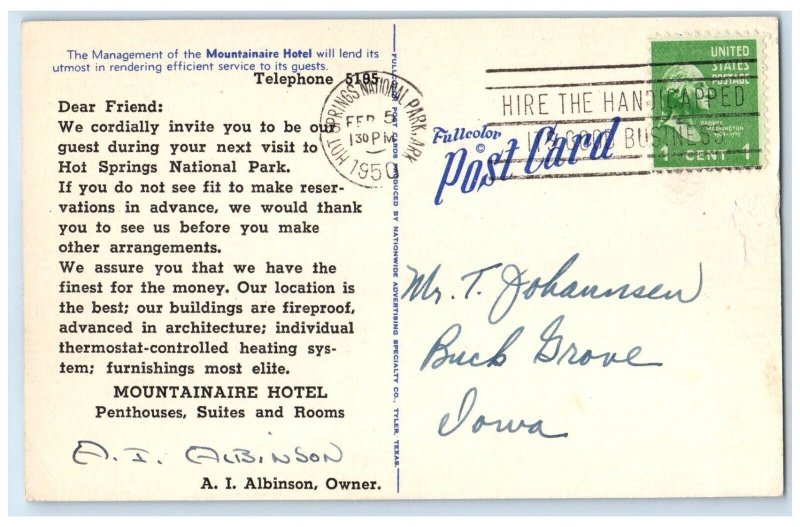 The Management of the Mountainaire Hotel will lend its
utmost in rendering efficient service to its guests.
Telephone 5195
Dear Friend:
We cordially invite you to be our
guest during your next visit to
Hot Springs National Park.
If you do not see fit to make reser-
vations in advance, we would thank
you to see us before you make
other arrangements.
We assure you that we have the
finest for the money. Our location is
the best; our buildings are fireproof,
advanced in architecture; individual
thermostat-controlled heating sys-
tem; furnishings most elite.
MOUNTAINAIRE HOTEL
Penthouses, Suites and Rooms
A. I. ALBINSON
A. I. Albinson, Owner.
FULLCOLOR POST CARDS PRODUCED BY NATIONWIDE ADVERTISING SPECIALTY CO., TYLER, TEXAS.
HOT SPRINGS NATIONAL PARK, ARK.
FEB 5
130 PM
1950
HIRE THE HANDICAPPED
IT'S GOOD BUSINESS
UNITED
STATES
POSTAGE
GEORGE
WASHINGTON
1 CENT 1
Fullcolor
©
Post Card
Mr. T. Johannsen
Buck Grove
Iowa